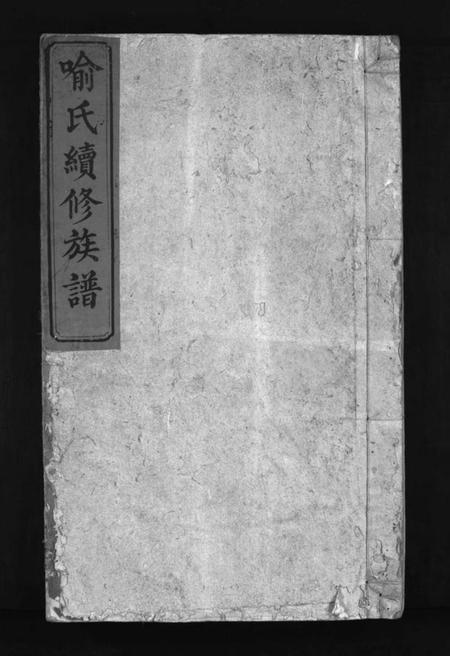 喻氏續修族譜